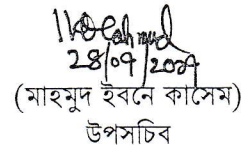 28/07/2027
(মাহমুদ ইবনে কাসেম)
উপসচিব